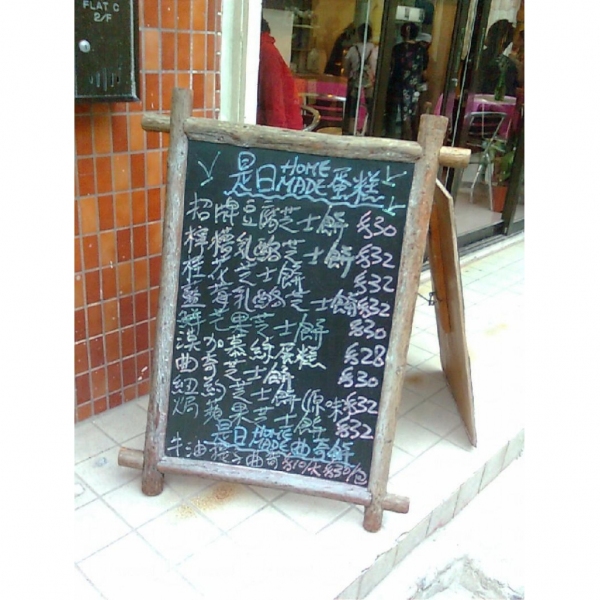 FLAT C
2/F
是日HOME MADE蛋糕
招牌豆腐芝士餅 $30
檸檬乳酪芝士餅 $32
桂花芝士餅 $32
藍莓乳酪芝士餅 $32
鮮芒果芝士餅 $30
漠加慕絲蛋糕 $28
曲奇芝士餅 $30
紐約芝士餅(原味) $32
焗蘋果芝士餅 $32
是日HOME MADE曲奇餅
牛油提子曲奇 $10/ $30/包